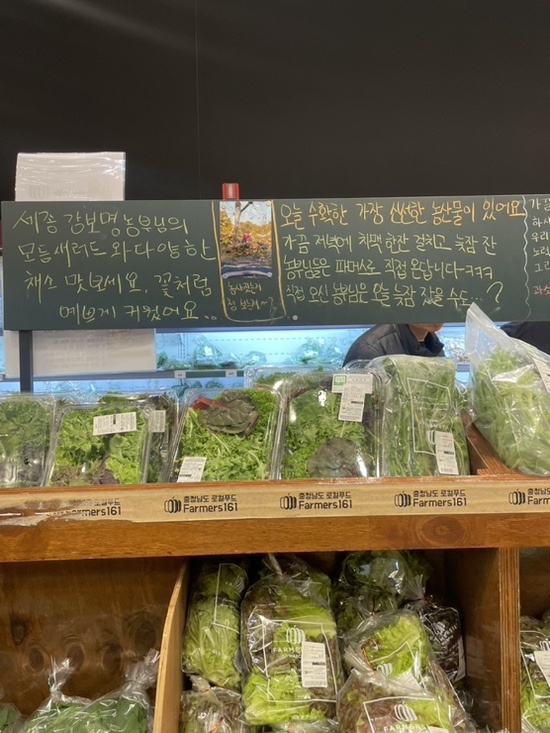 세종 감보명 농부님의
모듬쌔러드 와 다양한
채소 맛보세요. 꽃처럼
예쁘게 키웠어요..
오늘 수확한 가장 신선한 농산물이 있어요
가끔 저녁에 치맥 한잔 걸치고 늦잠 잔
농부님들은 파머스로 직접 온답니다-ㅋㅋㅋ
직접 오신 농부님은 오늘 늦잠 잤을 수도...?
충청남도 로컬푸드
Farmers161
충청남도 로컬푸드
Farmers161
충청남도 로컬푸드
Farmers161
충청남도 로컬푸드
Farmers
FARMERS
FARMERS